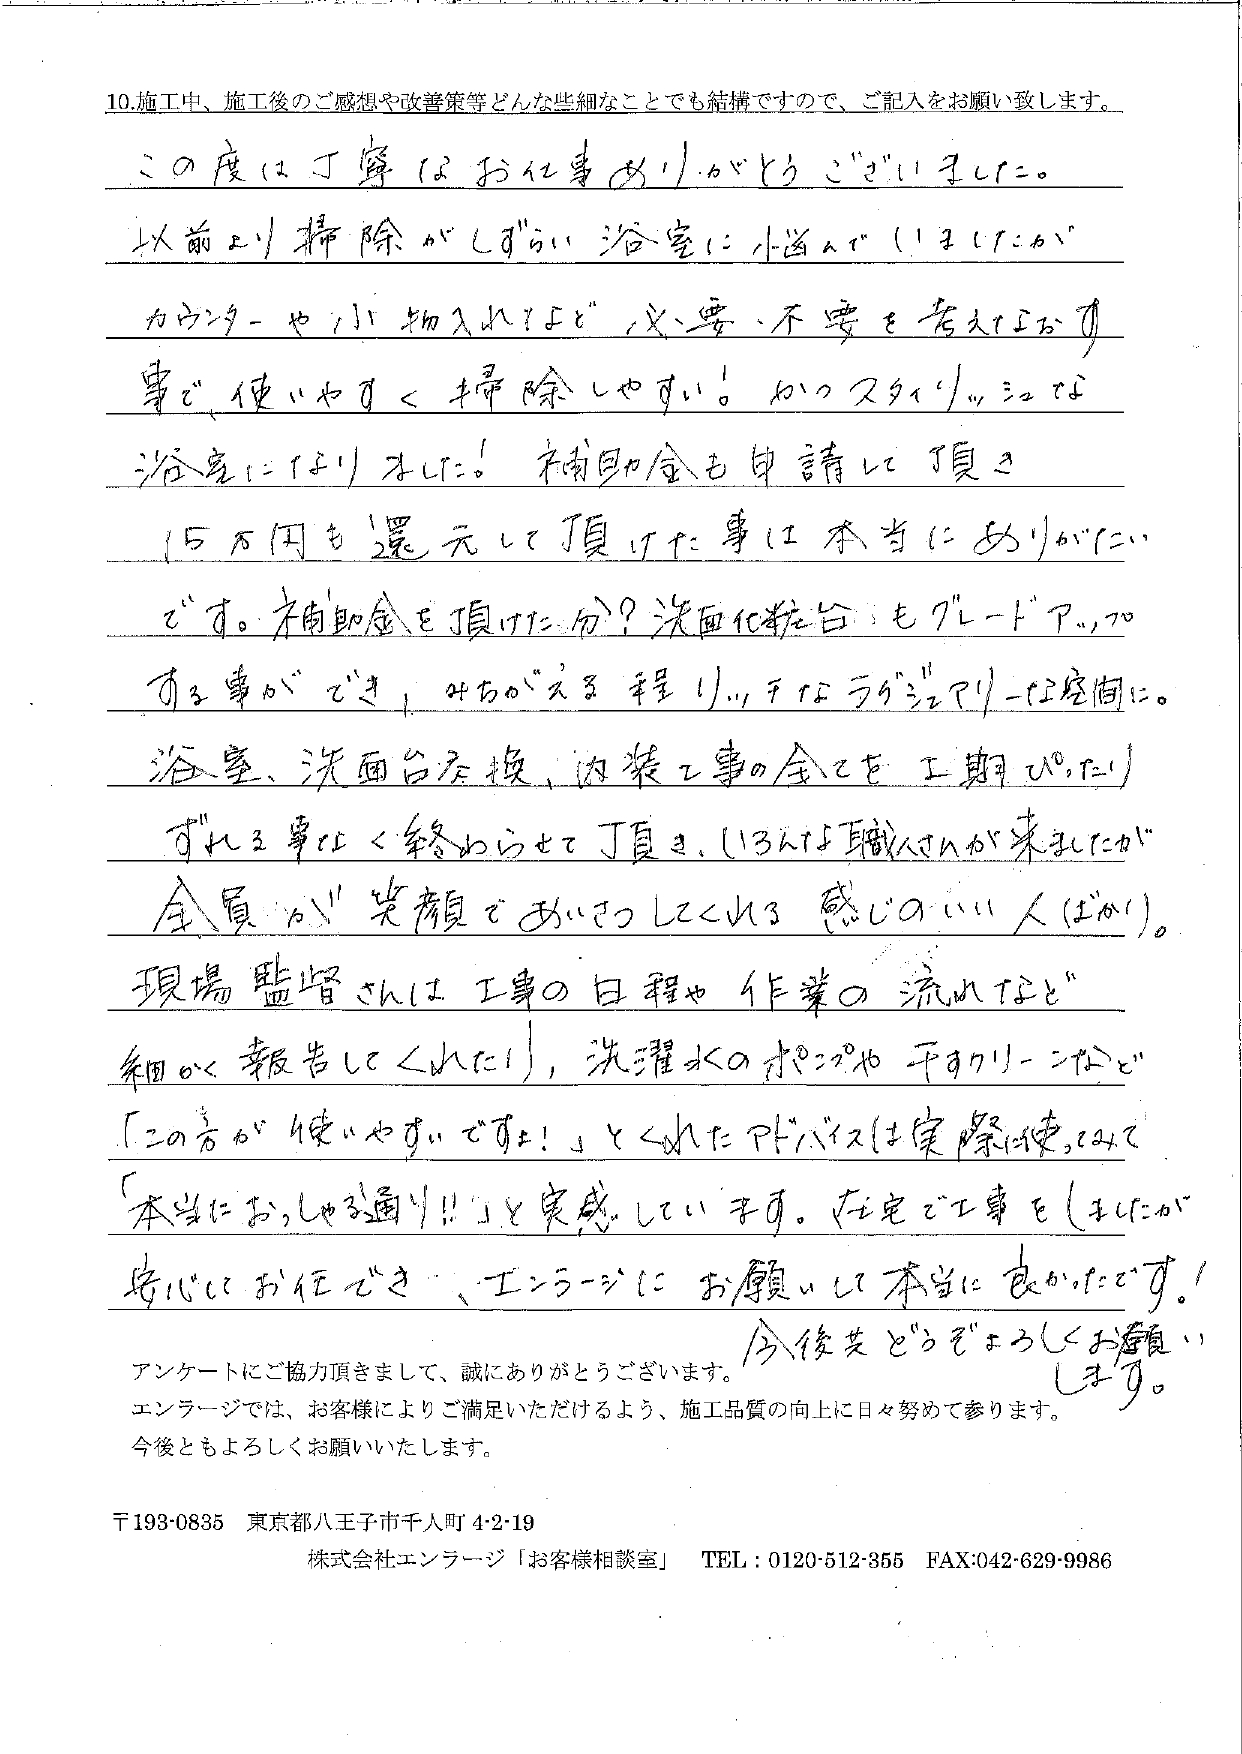 10.施工中、施工後のご感想や改善策等どんな些細なことでも結構ですので、ご記入をお願い致します。
この度は丁寧なお仕事ありがとうございました。
以前より掃除がしずらい浴室に悩んでいましたが
カウンターや小物入れなど必要・不要を考えなおす
事で、使いやすく掃除しやすい！かつスタイリッシュな
浴室になりました！補助金も申請して頂き
15万円も還元して頂けた事は本当にありがたい
です。補助金を頂けた分？洗面化粧台もグレードアップ
する事ができ、みちがえる程リッチなラグジュアリーな空間に。
浴室、洗面台交換、内装工事の全てを工期ぴったり
ずれる事なく終わらせて頂き、いろんな職人さんが来ましたが
全員が笑顔であいさつしてくれる感じのいい人ばかり。
現場監督さんは工事の日程や作業の流れなど
細かく報告してくれたり、洗濯水のポンプや干すクリーンなど
「この方が使いやすいですよ！」とくれたアドバイスは実際に使ってみて
「本当におっしゃる通り!!」と実感しています。在宅で工事をしましたが
安心してお任でき, エンラージにお願いして本当に良かったです！
今後共どうぞよろしくお願い
します。
アンケートにご協力頂きまして、誠にありがとうございます。
エンラージでは、お客様によりご満足いただけるよう、施工品質の向上に日々努めて参ります。
今後ともよろしくお願いいたします。
〒193-0835　東京都八王子市千人町 4-2-19
株式会社エンラージ「お客様相談室」　TEL：0120-512-355　FAX:042-629-9986